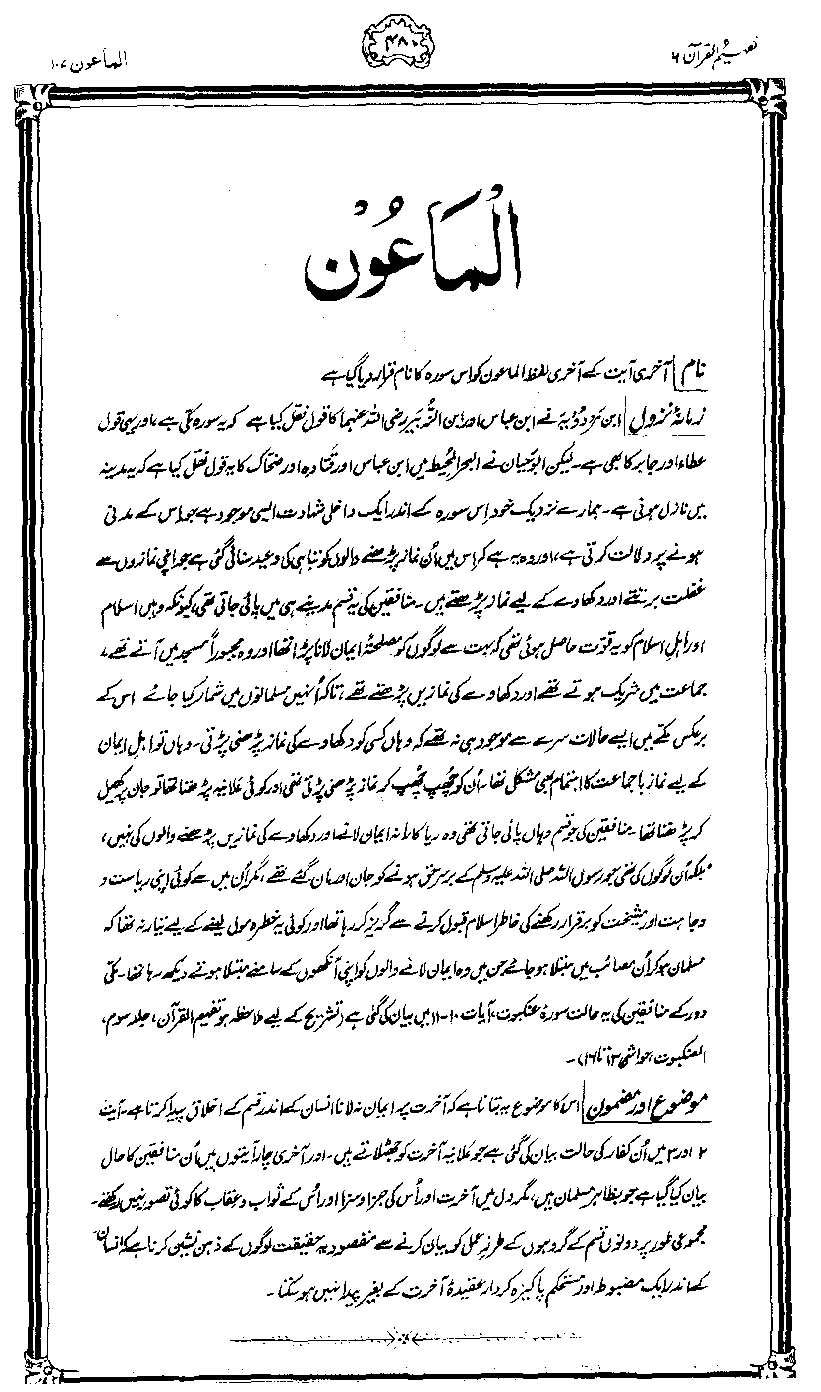 تفہیم القرآن ۶
۴۸۰
الماعون ۱۰۷
الْمَاعُوْن
نام آخری آیت کے آخری لفظ الماعون کو اس سورہ کا نام قرار دیا گیا ہے
زمانۂ نزول ابن مَرْدُوْیَہ نے ابن عباس اور ابن الزُّبَیر رضی اللہ عنہما کا قول نقل کیا ہے کہ یہ سورہ مکی ہے، اور یہی قول
عطاء اور جابر کا بھی ہے۔ لیکن ابو حیان نے البحر المُحیط میں ابن عباس اور قَتادہ اور ضحّاک کا یہ قول نقل کیا ہے کہ یہ مدینہ
میں نازل ہوئی ہے۔ ہمارے نزدیک خود اِس سورہ کے اندر ایک داخلی شہادت ایسی موجود ہے جو اِس کے مدنی
ہونے پر دلالت کرتی ہے، اور وہ یہ ہے کہ اِس میں اُن نماز پڑھنے والوں کو تباہی کی وعید سنائی گئی ہے جو اپنی نمازوں سے
غفلت برتتے اور دکھاوے کے لیے نماز پڑھتے ہیں۔ منافقین کی یہ قسم مدینے ہی میں پائی جاتی تھی، کیونکہ وہیں اسلام
اور اہلِ اسلام کو یہ قوّت حاصل ہوئی تھی کہ بہت سے لوگوں کو مصلحۃً ایمان لانا پڑا تھا اور وہ مجبوراً مسجد میں آتے تھے،
جماعت میں شریک ہوتے تھے اور دکھاوے کی نمازیں پڑھتے تھے، تاکہ اُنہیں مسلمانوں میں شمار کیا جائے اس کے
برعکس مکّے میں ایسے حالات سرے سے موجود ہی نہ تھے کہ وہاں کسی کو دکھاوے کی نماز پڑھنی پڑتی۔ وہاں تو اہلِ ایمان
کے لیے نماز باجماعت کا اہتمام بھی مشکل تھا۔ اُن کو چُھپ چُھپ کر نماز پڑھنی پڑتی تھی اور کوئی علانیہ پڑھتا تھا تو جان پر کھیل
کر پڑھتا تھا۔ منافقین کی جو قسم وہاں پائی جاتی تھی وہ ریاکارانہ ایمان لانے اور دکھاوے کی نمازیں پڑھنے والوں کی نہیں،
بلکہ اُن لوگوں کی تھی جو رسول اللہ صلی اللہ علیہ وسلم کے برسرِ حق ہونے کو جان اور مان گئے تھے، مگر اُن میں سے کوئی اپنی ریاست و
وجاہت اور مشیخت کو برقرار رکھنے کی خاطر اسلام قبول کرنے سے گریز کر رہا تھا اور کوئی یہ خطرہ مول لینے کے لیے تیار نہ تھا کہ
مسلمان ہو کر اُن مصائب میں مبتلا ہو جائے جن میں وہ ایمان لانے والوں کو اپنی آنکھوں کے سامنے مبتلا ہوتے دیکھ رہا تھا۔ مکی
دور کے منافقین کی یہ حالت سورۂ عنکبوت، آیات ۱۰-۱۱ میں بیان کی گئی ہے (تشریح کے لیے ملاحظہ ہو تفہیم القرآن، جلد سوم،
العنکبوت، حواشی ۱۳ تا ۱۶)۔
موضوع اور مضمون اِس کا موضوع یہ بتانا ہے کہ آخرت پر ایمان نہ لانا انسان کے اندر کس قسم کے اخلاق پیدا کرتا ہے۔ آیت
۲ اور ۳ میں اُن کفار کی حالت بیان کی گئی ہے جو علانیہ آخرت کو جھٹلاتے ہیں۔ اور آخری چار آیتوں میں اُن منافقین کا حال
بیان کیا گیا ہے جو بظاہر مسلمان ہیں، مگر دل میں آخرت اور اُس کی جزا و سزا اور اُس کے ثواب و عِقاب کا کوئی تصور نہیں رکھتے۔
مجموعی طور پر دونوں قسم کے گروہوں کے طرزِ عمل کو بیان کرنے سے مقصود یہ حقیقت لوگوں کے ذہن نشین کرنا ہے کہ انسان
کے اندر ایک مضبوط اور مستحکم پاکیزہ کردار عقیدۂ آخرت کے بغیر پیدا نہیں ہو سکتا۔